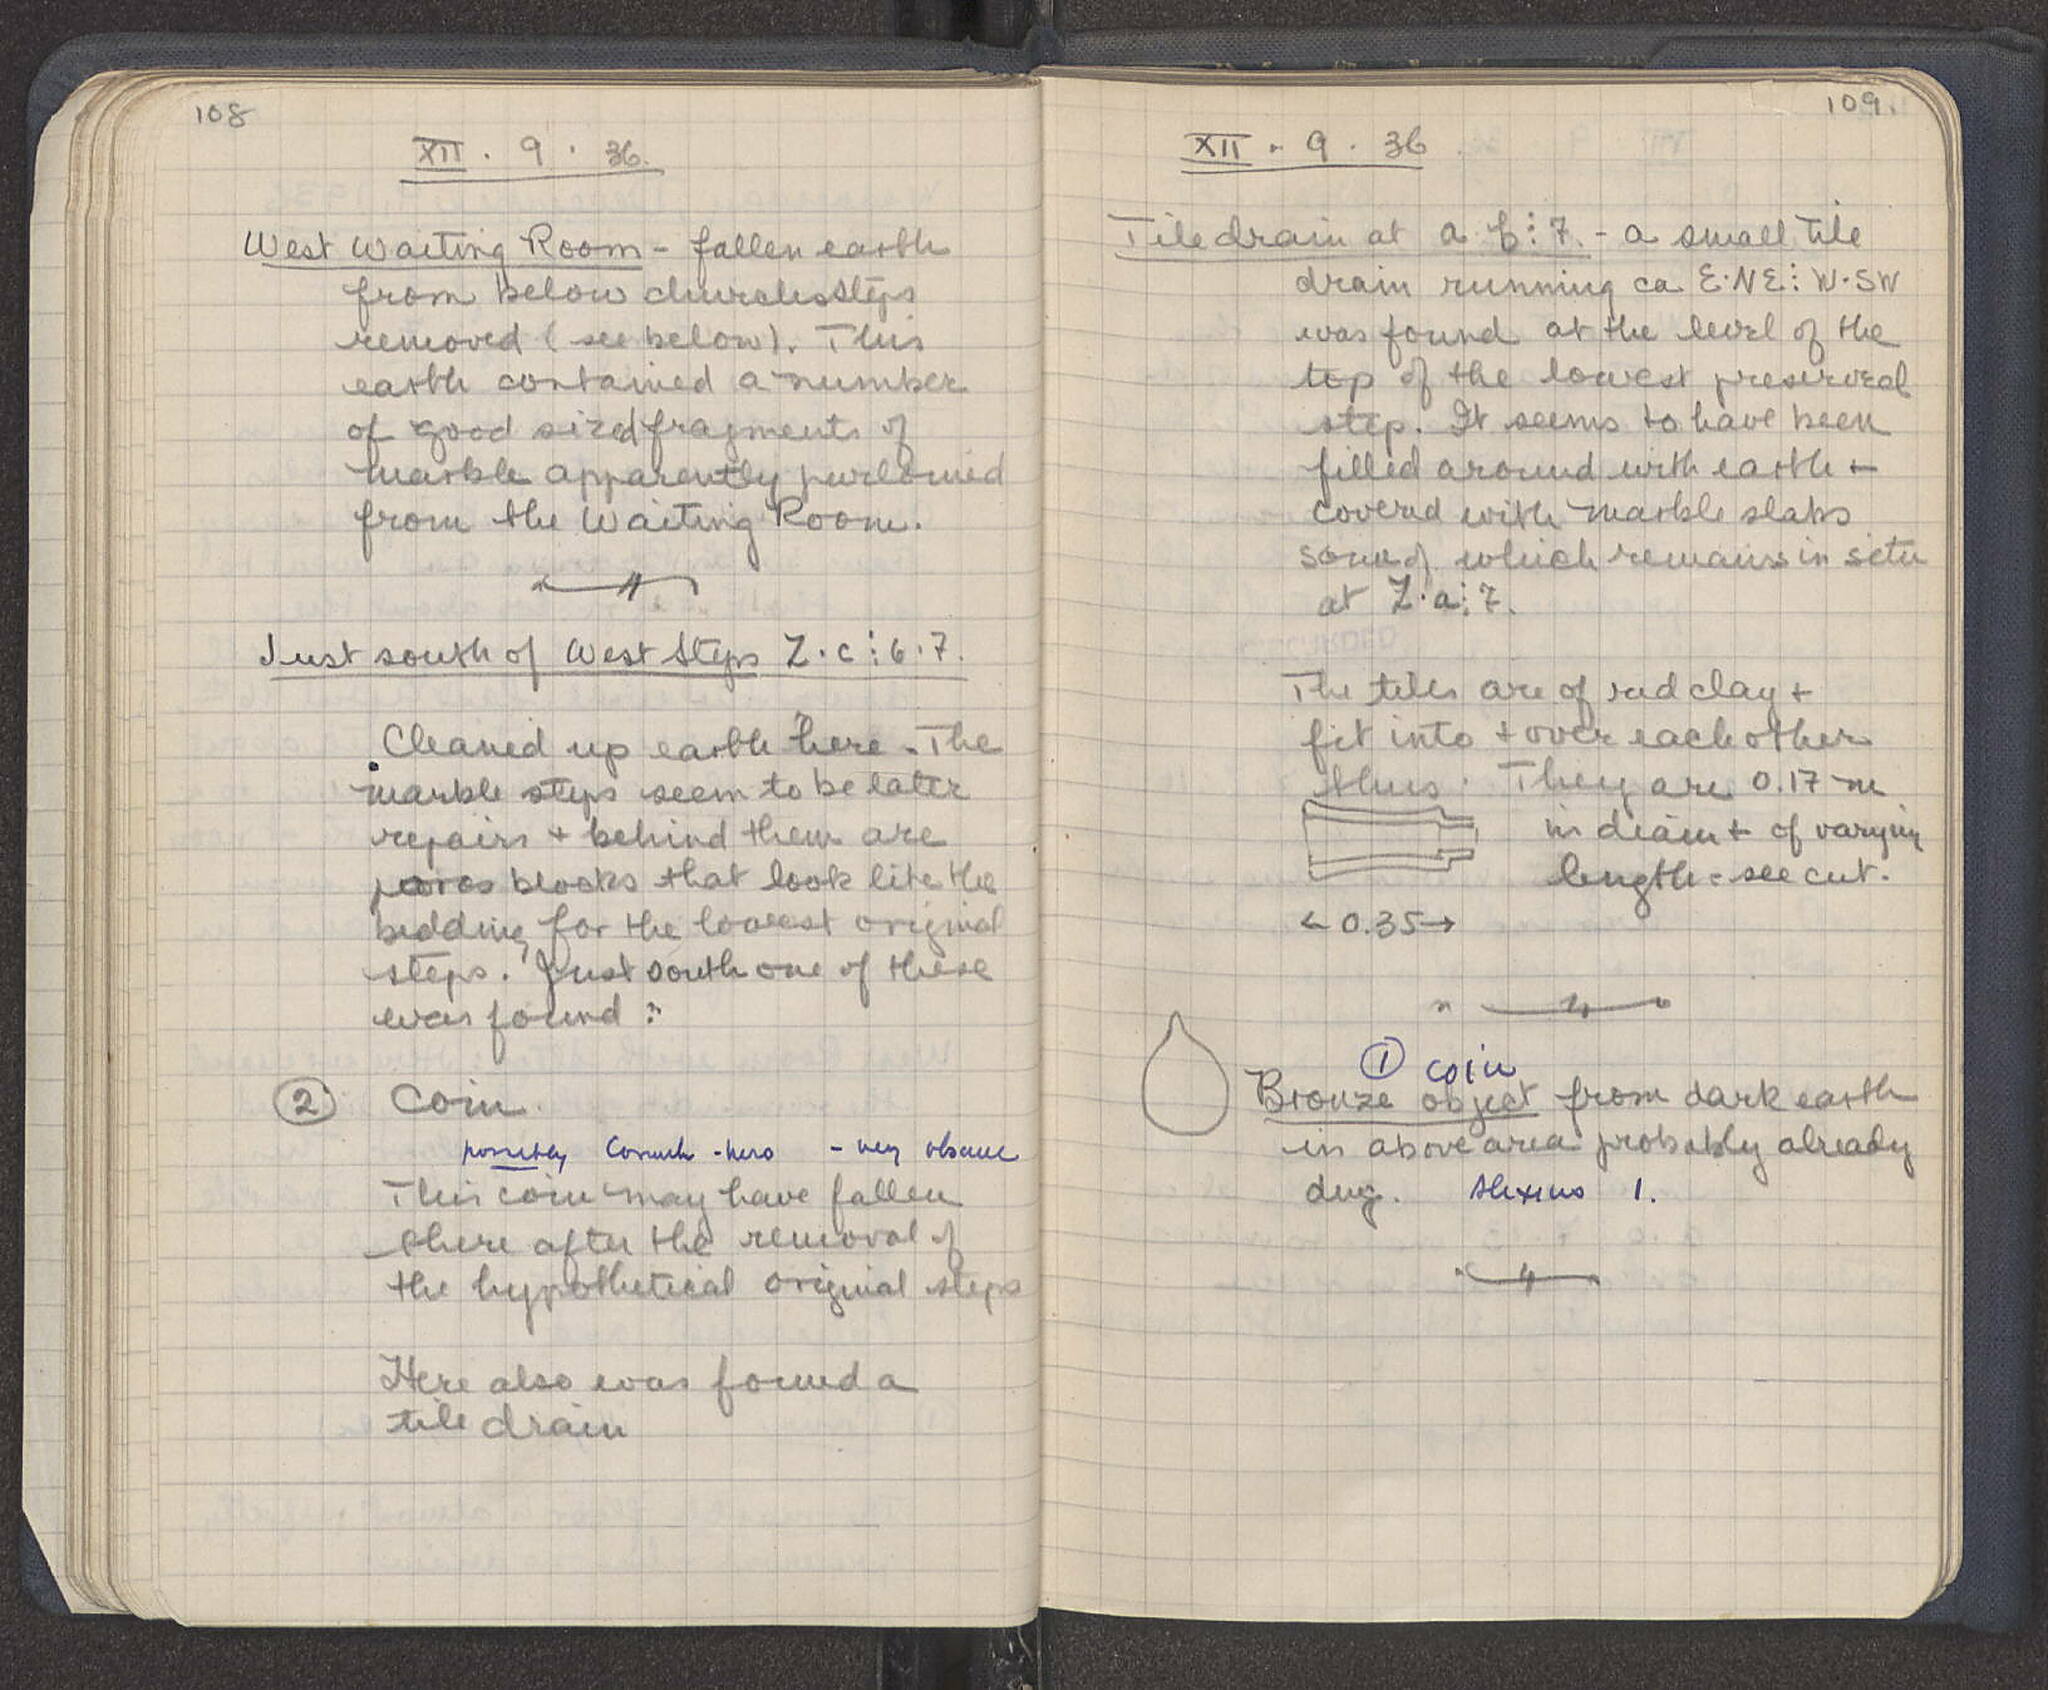 108
XII . 9 . 36.
West Waiting Room - fallen earth
from below church steps
removed (see below). This
earth contained a number
of good sized fragments of
marble apparently purloined
from the Waiting Room.
Just south of West Steps Z.c:6.7.
Cleaned up earth here. The
marble steps seem to be later
repairs + behind them are
poros blocks that look like the
bedding for the lowest original
steps. Just south one of these
was found:
2 Coin.
possibly - very obscure
This coin may have fallen
there after the removal of
the hypothetical original steps
Here also was found a
tile drain
109.
XII . 9 . 36
Tile drain at a b:7. - a small tile
drain running ca E.NE:W.SW
was found at the level of the
top of the lowest preserved
step. It seems to have been
filled around with earth +
covered with marble slabs
some of which remains in situ
at Z.a:7.
The tiles are of red clay +
fit into + over each other
thus. They are 0.17 m
in diam + of varying
length - see cut.
← 0.35 →
1 coin
Bronze object from dark earth
in above area probably already
dug. Alexius 1.